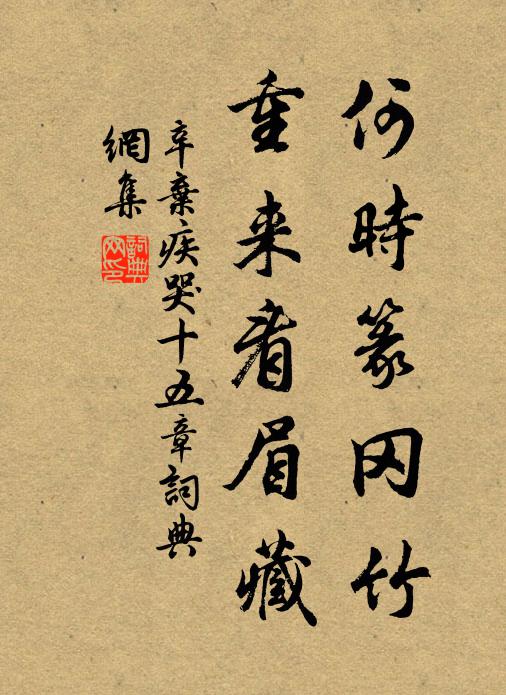 何時篆冈竹
重来看眉藏
辛棄疾哭十五章詞典
網集
詞典網印